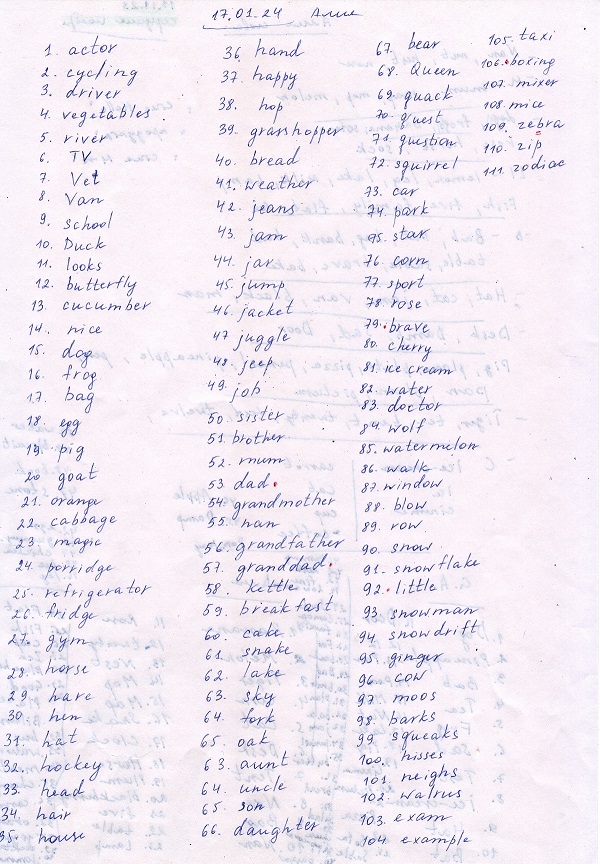 17.01.24
1. actor
2. cycling
3. driver
4. vegetables
5. river
6. TV
7. Vet
8. Van
9. school
10. Duck
11. looks
12. butterfly
13. cucumber
14. nice
15. dog
16. frog
17. bag
18. egg
19. pig
20 goat
21. orange
22. cabbage
23. magic
24. porridge
25. refrigerator
26. fridge
27. gym
28. horse
29. hare
30. hen
31. hat
32. hockey
33. head
34. hair
35. house
36. hand
37. happy
38. hop
39. grasshopper
40. bread
41. weather
42. jeans
43. jam
44. jar
45. jump
46. jacket
47 juggle
48. jeep
49. job
50. sister
51. brother
52. mum
53. dad
54. grandmother
55. nan
56. grandfather
57. granddad
58. kettle
59. breakfast
60. cake
61. snake
62. lake
63. sky
64. fork
65. oak
63. aunt
64. uncle
65. son
66. daughter
67. bear
68. Queen
69. quack
70. quest
71. question
72. squirrel
73. car
74. park
75. star
76. corn
77. sport
78. rose
79. brave
80. cherry
81. ice cream
82. water
83. doctor
84. wolf
85. watermelon
86. walk
87. window
88. blow
89. row
90. snow
91. snowflake
92. little
93. snowman
94. snowdrift
95. ginger
96. cow
97. moos
98. barks
99. squeaks
100. hisses
101. neighs
102. walrus
103. exam
104. example
105. taxi
106. boxing
107. mixer
108. mice
109. zebra
110. zip
111. zodiac